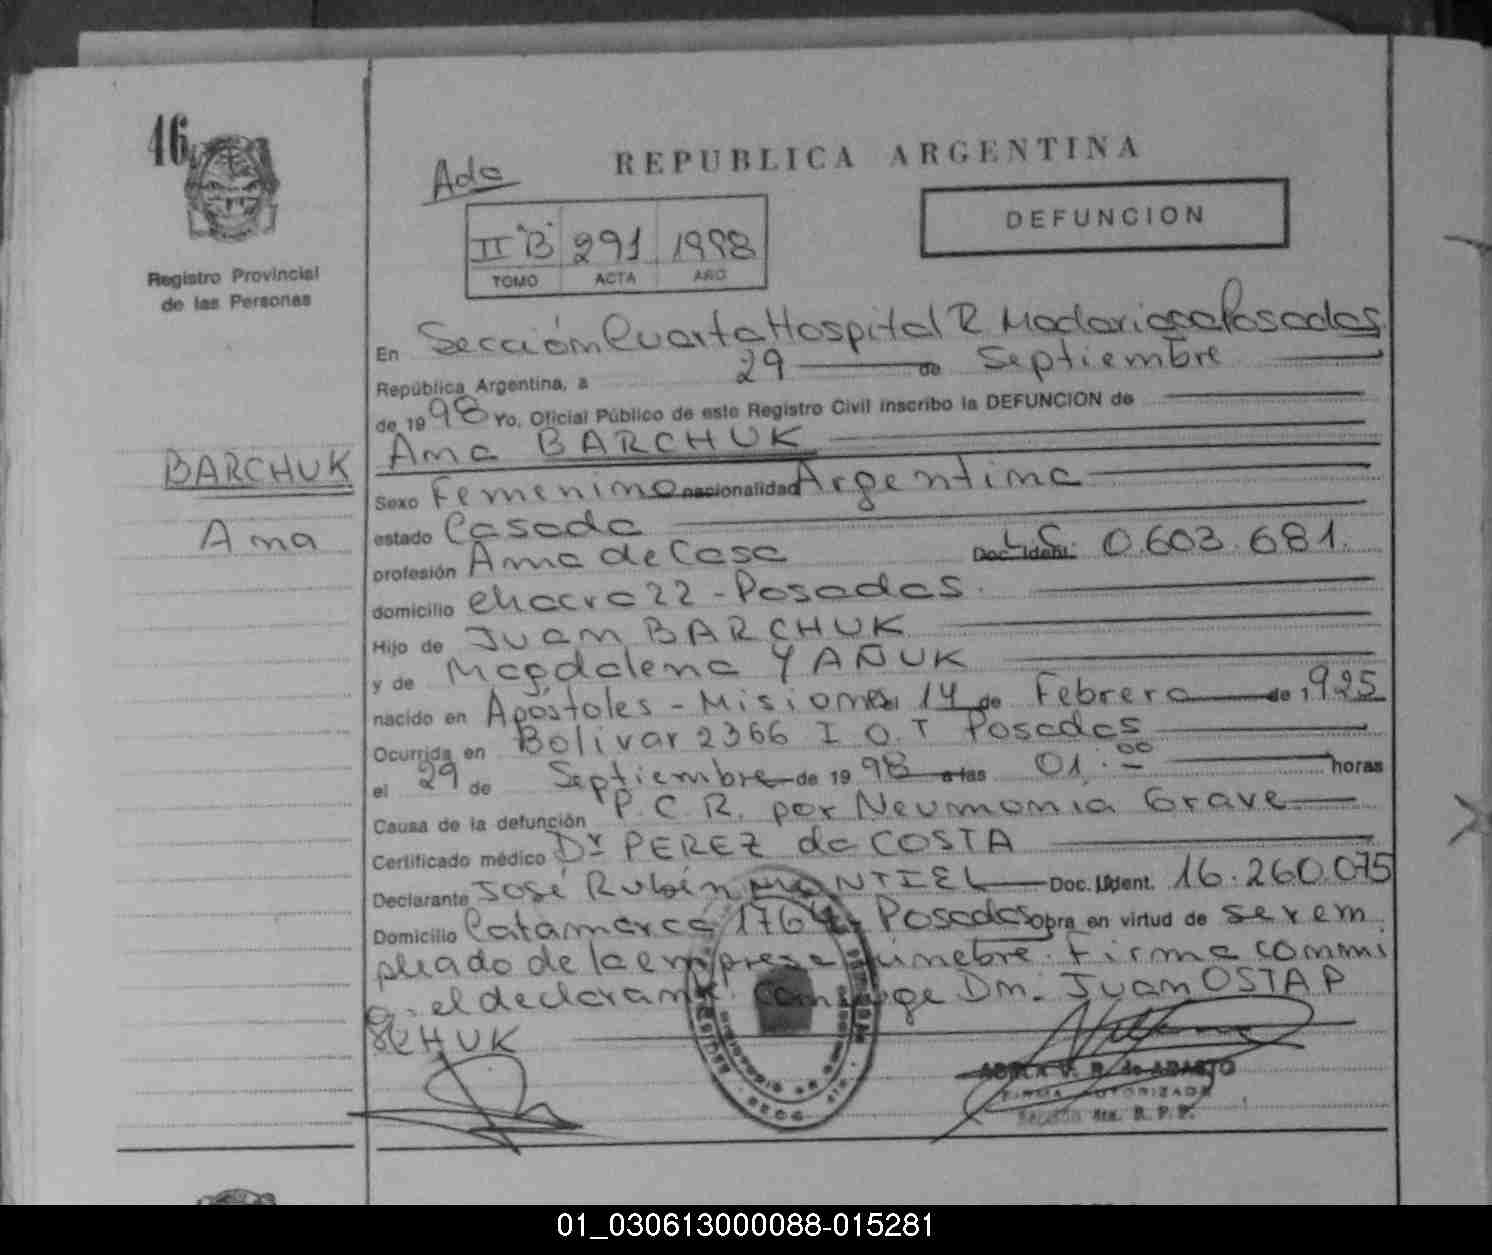 16
Registro Provincial
de las Personas
BARCHUK
Ana
REPUBLICA ARGENTINA
DEFUNCION
II "B" 291 1998
TOMO ACTA AÑO
En Sección Cuarta Hospital R Madariaga Posadas
República Argentina, a 29 de Septiembre
de 1998 Yo, Oficial Público de este Registro Civil inscribo la DEFUNCION de
Ana BARCHUK
Sexo Femenino nacionalidad Argentina
estado Casada
profesión Ama de Casa Doc. Ident. L C 0.603.681.
domicilio chacra 22 - Posadas.
Hijo de Juan BARCHUK
y de Magdalena YAÑUK
nacido en Apóstoles - Misiones 14 de Febrero de 1925
Ocurrida en Bolivar 2366 I O. T Posadas
el 29 de Septiembre de 1998 a las 01:00 horas
Causa de la defunción P. C. R. por Neumonia Grave
Certificado médico Dr PEREZ da COSTA
Declarante José Rubén MONTIEL Doc. Ident. 16.260.075
Domicilio Catamarca 1764 - Posadas obra en virtud de ser em
pleado de la empresa fúnebre. Firma conmi
go. el declarante. Conyuge Dn. Juan OSTAP
CHUK
ADELA V. B. de ABASTO
FIRMA AUTORIZADA
Sección 4ta. R. P. P.
01_030613000088-015281